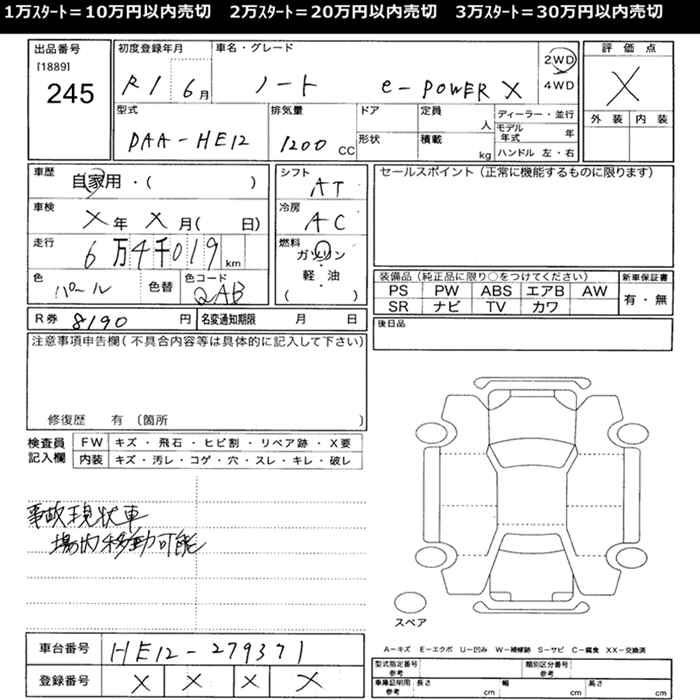 1万ｽﾀｰﾄ＝10万円以内売切　2万ｽﾀｰﾄ＝20万円以内売切　3万ｽﾀｰﾄ＝30万円以内売切
出品番号
[1889]
245
初度登録年月
R1 6月
車名・グレード
ノート e-POWER X
2WD
4WD
評価点
X
外装 内装
型式
DAA-HE12
排気量
1200 CC
ドア
形状
定員 人
積載 kg
ディーラー・並行
モデル年式 年
ハンドル 左・右
車歴
自家用・( )
車検
X年 X月( 日)
走行
6万4千019km
色
パール
色替
色コード
QAB
シフト
AT
冷房
AC
燃料
ガソリン
軽・油
( )
セールスポイント（正常に機能するものに限ります）
装備品（純正品に限り○をつけてください）
PS PW ABS エアB AW
SR ナビ TV カワ
新車保証書
有・無
R券 8190 円
名変通知期限 月 日
後日品
注意事項申告欄（不具合内容等は具体的に記入して下さい）
修復歴 有 〔箇所 〕
検査員記入欄
FW キズ・飛石・ヒビ割・リペア跡・X要
内装 キズ・汚レ・コゲ・穴・スレ・キレ・破レ
事故現状車
場内移動可能
スペア
車台番号 HE12-279371
登録番号 X X X X
A－キズ E－エクボ U－凹み W－補修跡 S－サビ C－腐食 XX－交換済
型式指定番号 参考
類別区分番号 参考
車庫証明用 参考
長さ cm 幅 cm 高さ cm